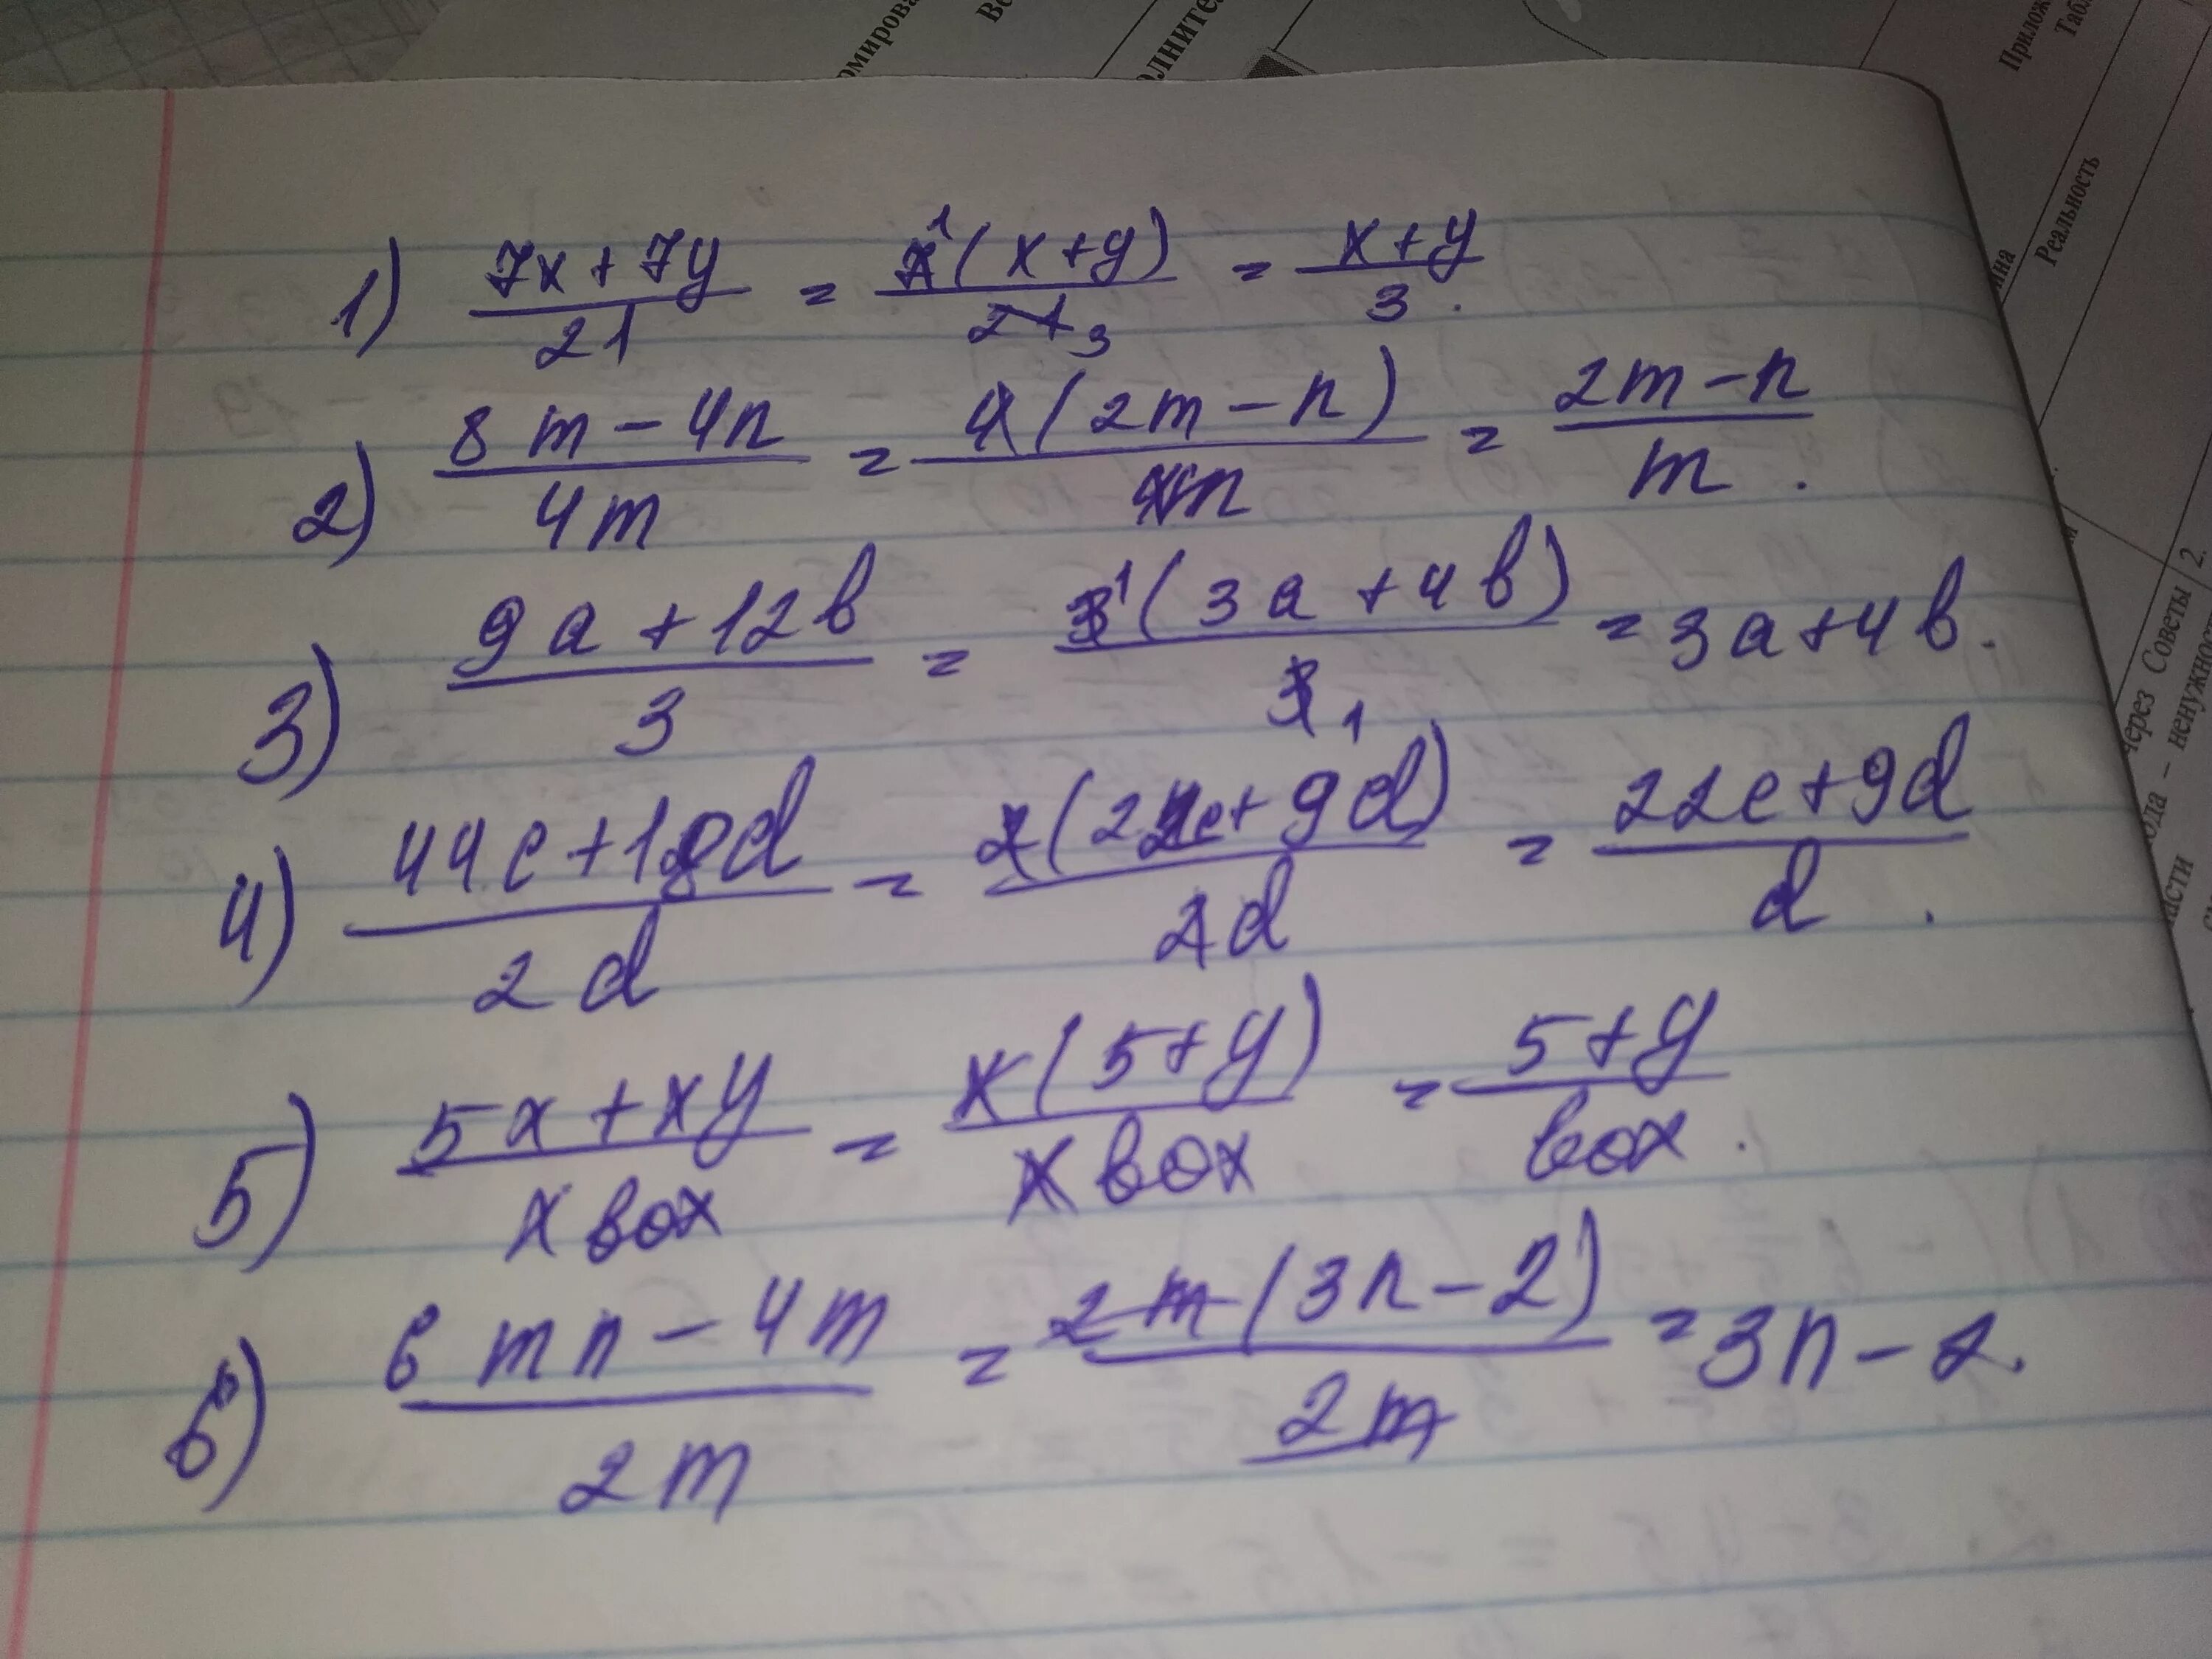 омирова
Во
олнител
Прилож
Табл
Реальность
ина
через Советы 2.
ола – ненужно
асти
1) (7x + 7y)/21 = 7¹(x + y)/21₃ = (x + y)/3.
2) (8m – 4n)/4m = 4(2m – n)/4m = (2m – n)/m.
3) (9a + 12b)/3 = 3¹(3a + 4b)/3₁ = 3a + 4b.
4) (44c + 18d)/2d = 2(22c + 9d)/2d = (22c + 9d)/d.
5) (5x + xy)/xbox = x(5 + y)/xbox = (5 + y)/box.
6) (6mn – 4m)/2m = 2m(3n – 2)/2m = 3n – 2.